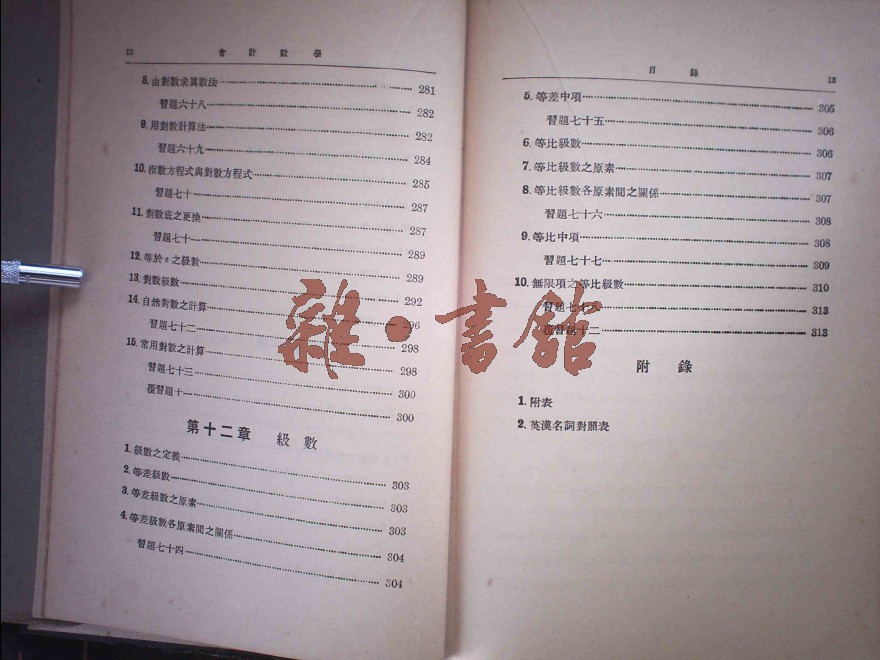 12 會計數學
8. 由對數求眞數法 281
習題六十八 282
9. 用對數計算法 282
習題六十九 284
10. 指數方程式與對數方程式 285
習題七十 287
11. 對數底之更換 287
習題七十一 289
12. 等於 e 之級數 289
13. 對數級數 292
14. 自然對數之計算 296
習題七十二 298
15. 常用對數之計算 298
習題七十三 300
復習題十一 300
第十二章 級數
1. 級數之定義 303
2. 等差級數 303
3. 等差級數之原素 303
4. 等差級數各原素間之關係 304
習題七十四 304
目錄 13
5. 等差中項 305
習題七十五 306
6. 等比級數 306
7. 等比級數之原素 307
8. 等比級數各原素間之關係 307
習題七十六 308
9. 等比中項 308
習題七十七 309
10. 無限項之等比級數 310
習題七十八 313
復習題十二 313
附錄
1. 附表
2. 英漢名詞對照表
雜·書館